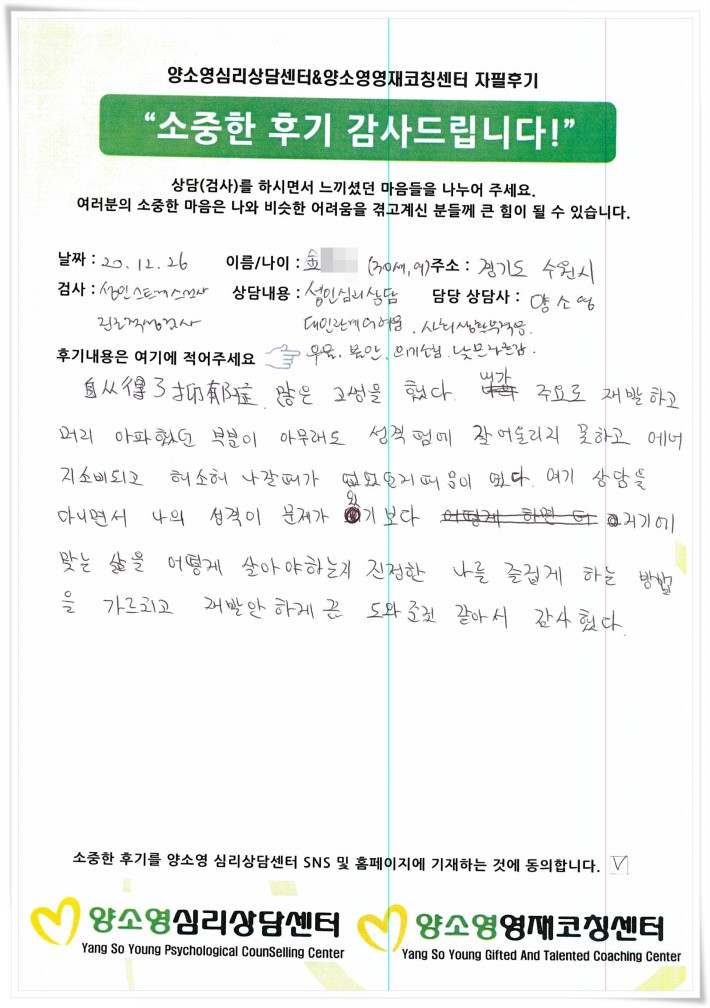 양소영심리상담센터&양소영영재코칭센터 자필후기
“소중한 후기 감사드립니다!”
상담(검사)를 하시면서 느끼셨던 마음들을 나누어 주세요.
여러분의 소중한 마음은 나와 비슷한 어려움을 겪고계신 분들께 큰 힘이 될 수 있습니다.
날짜 : 20. 12. 26 이름/나이 : 金 (30세, 여) 주소 : 경기도 수원시
검사 : 성인스트레스검사 상담내용 : 성인심리상담 담당 상담사 : 양소영
진로적성검사 대인관계어려움, 사회생활부적응,
후기내용은 여기에 적어주세요 우울, 불안, 의기소침, 낮은자존감.
自从得了抑郁症, 많은 고생을 했다. 내가 주요로 재발하고
머리 아파했던 부분이 아무래도 성격 땜에 잘 어울리지 못하고 에너
지소비되고 허소허 나갈때가 없었 때문이 였다. 여기 상담을
다니면서 나의 성격이 문제가 있기 보다 거기에
맞는 삶을 어떻게 살아야하는지 진정한 나를 즐겁게 하는 방법
을 가르치고 재발안하게끔 도와준것 같아서 감사했다.
소중한 후기를 양소영 심리상담센터 SNS 및 홈페이지에 기재하는 것에 동의합니다. V
양소영심리상담센터 양소영영재코칭센터
Yang So Young Psychological CounSelling Center Yang So Young Gifted And Talented Coaching Center